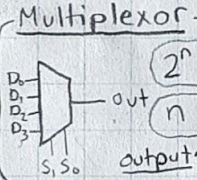 Multiplexor
D₀
D₁
D₂
D₃
out
S₁ S₀
2ⁿ
n
output